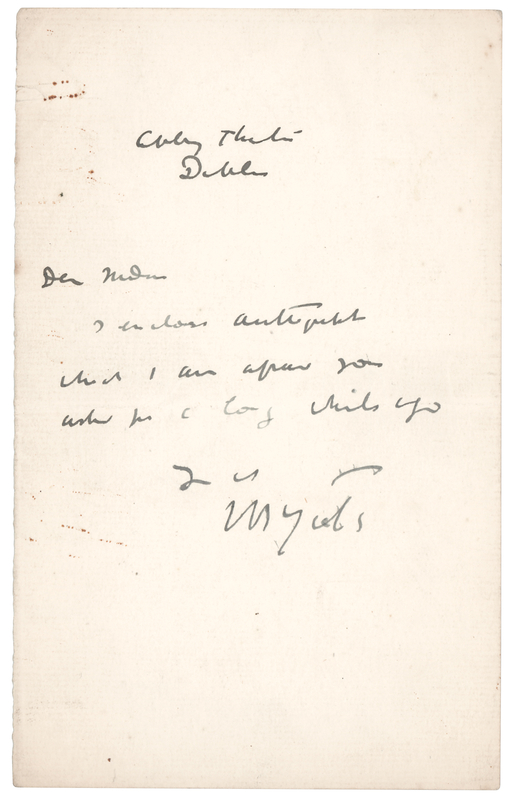 Abbey Theatre
Dublin
Dear Madam
I enclose autograph
which I am afraid you
asked for a long while ago
Yrs
WB Yeats